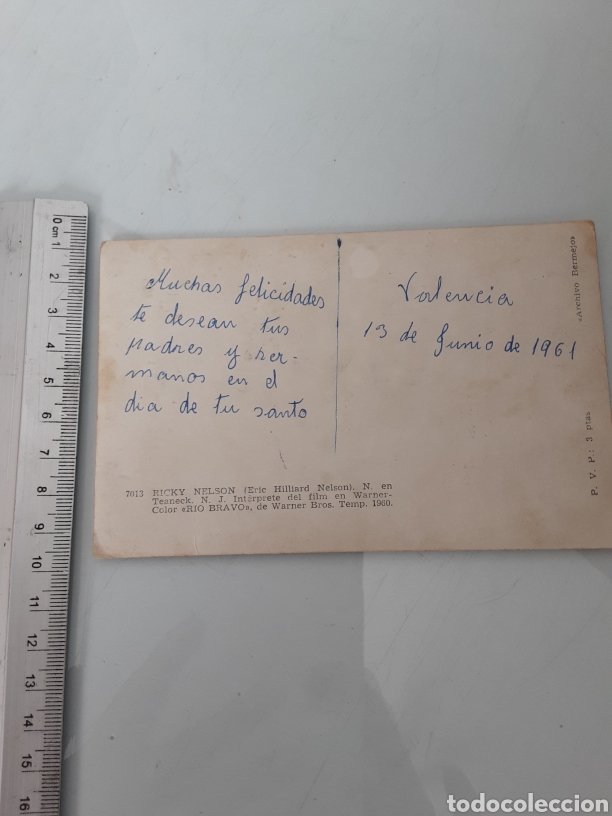 Muchas felicidades
te desean tus
padres y her-
manos en el
dia de tu santo
Valencia
13 de Junio de 1961
7013 RICKY NELSON (Eric Hilliard Nelson). N. en
Teaneck. N. J. Intérprete del film en Warner-
Color «RIO BRAVO», de Warner Bros. Temp. 1960.
«Archivo Bermejo»
P. V. P.: 3 ptas
0 cm 1
2
3
4
5
6
7
8
9
10
11
12
13
14
15
16
todocoleccion